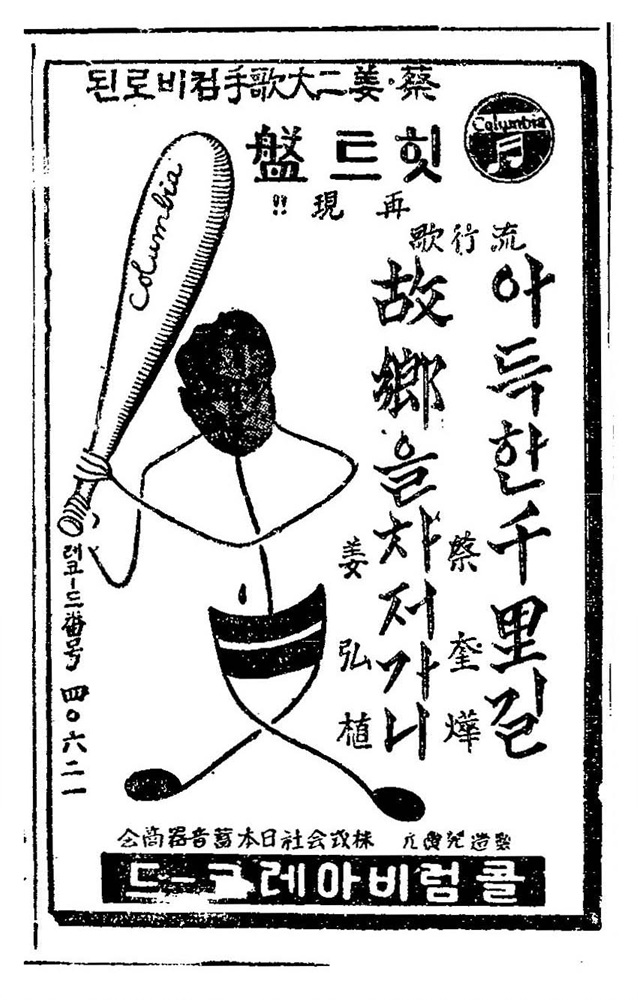 蔡·姜二大歌手컴비로된
Columbia
힛트盤
再現!!
流行歌
아득한千里길
蔡奎燁
故鄕을차저가니
姜弘植
Columbia
레코-드番号 四〇六二一
製造発売元 株式会社日本蓄音器商会
콜럼비아레코-드